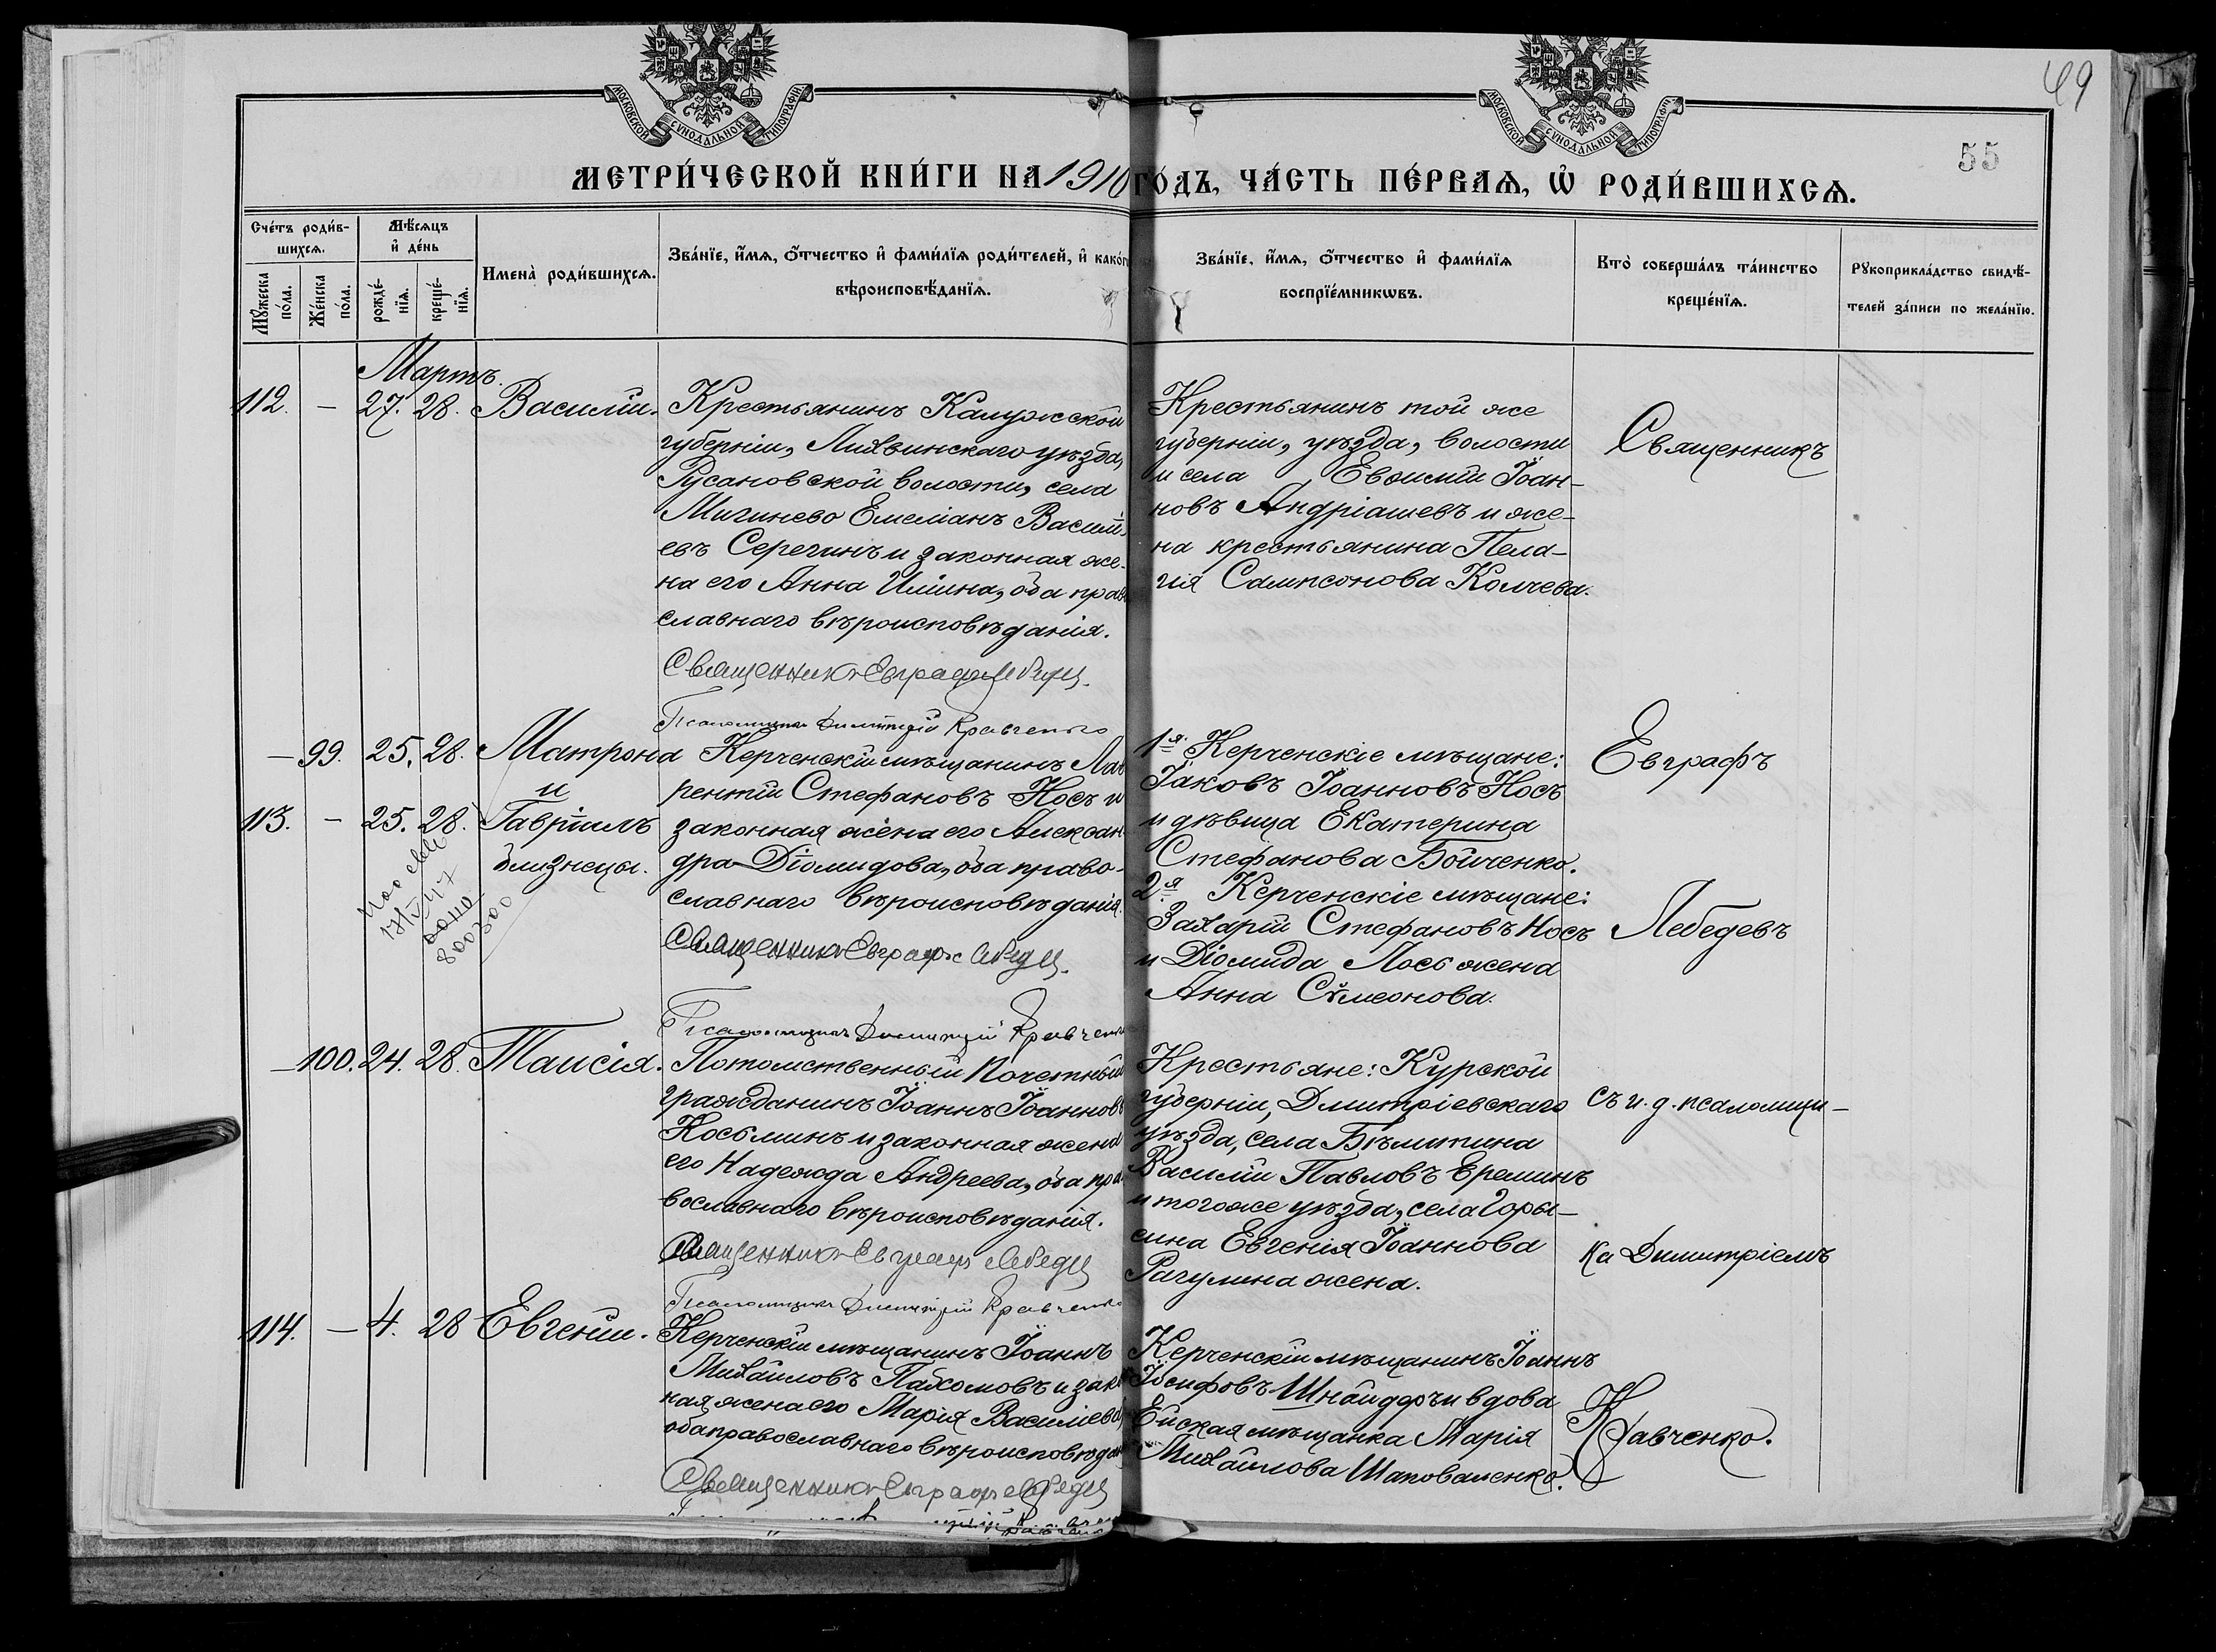 МОСКОВСКОЙ СѴНОДАЛЬНОЙ ТИПОГРАФІИ
МОСКОВСКОЙ СѴНОДАЛЬНОЙ ТИПОГРАФІИ
49
55
МЕТРИ́ЧЕСКОЙ КНИ́ГИ НА 1910 ГО́ДЪ, ЧА́СТЬ ПЕ́РВАѦ, Ѡ҆ РОДИ́ВШИХСѦ.
Сче́тъ роди́в-
шихсѧ.
Мꙋ́жеска
по́ла.
Же́нска
по́ла.
Мѣ́сѧцъ
и҆ де́нь
рожде́-
нїѧ.
креще́-
нїѧ.
Имена̀ роди́вшихсѧ.
Зва́нїе, и҆́мѧ, ѻ҆́тчество и҆ фами́лїѧ роди́телей, и҆ како́гѡ
вѣроисповѣ́данїѧ.
Зва́нїе, и҆́мѧ, ѻ҆́тчество и҆ фами́лїѧ
воспрїе́мникѡвъ.
Кто̀ соверша́лъ та́инство
креще́нїѧ.
Рꙋкоприкла́дство свидѣ́-
телей за́писи по жела́нїю.
Мартъ.
112. – 27. 28. Василій.
Крестьянинъ Калужской
губерніи, Лихвинскаго уѣзда,
Русановской волости, села
Мигинево Емеліанъ Василі-
евъ Серегинъ и законная же-
на его Анна Иліина, оба прав
славнаго вѣроисповѣданія.
Священникъ Евграфъ Лебедев
Псаломщикъ Димитрій Кравченко
Крестьянинъ той же
губерніи, уѣзда, волости
и села Евѳимій Іоан-
новъ Андріашевъ и же-
на крестьянина Пела-
гія Сампсонова Колчева.
Священникъ
– 99. 25. 28. Матрона
и
113. – 25. 28. Гавріилъ
близнецы.
Керченскій мѣщанинъ Лав
рентій Стефановъ Носъ и
законная жена его Алексан-
дра Діомидова, оба право-
славнаго вѣроисповѣданія.
Священникъ Евграфъ Лебедев
Псаломщикъ Димитрій Кравченко
1я. Керченскіе мѣщане:
Іаковъ Іоанновъ Носъ
и дѣвица Екатерина
Стефанова Бойченко.
2я Керченскіе мѣщане:
Захарій Стефановъ Носъ
и Діомида Лось жена
Анна Сѵмеонова.
Евграфъ
Лебедевъ
– 100. 24. 28. Таисія.
Потомственный Почетный
гражданинъ Іоаннъ Іоанновъ
Косьминъ и законная жена
его Надежда Андреева, оба пра
вославнаго вѣроисповѣданія.
Священникъ Евграфъ Лебедев
Псаломщикъ Димитрій Кравченко
Крестьяне: Курской
губерніи, Дмитріевскаго
уѣзда, села Бѣлитина
Василій Павловъ Ереминъ
и тогоже уѣзда, села Горы-
сина Евгенія Іоаннова
Рагулина жена.
съ и. д. псаломщи-
ка Димитріемъ
114. – 4. 28 Евгеній.
Керченскій мѣщанинъ Іоаннъ
Михайловъ Пахомовъ и закон
ная жена его Марія Василіева,
оба православнаго вѣроисповѣдан
Священникъ Евграфъ Лебедев
Керченскій мѣщанинъ Іоаннъ
Іосифовъ Шнайдеръ и вдова
Ейская мѣщанка Марія
Михайлова Шаповаленко.
Кравченко.